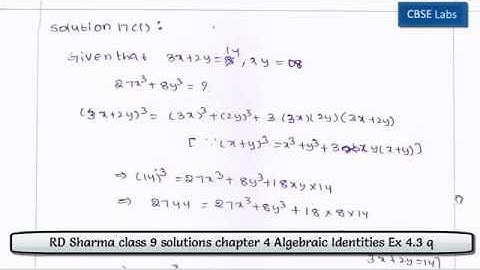 CBSE Labs
Solution 17(i) :
Given that 3x+2y=14, xy=08
27x³+8y³=?
(3x+2y)³ = (3x)³+(2y)³+3(3x)(2y)(3x+2y)
[∵(x+y)³=x³+y³+3xy(x+y)]
⇒ (14)³ = 27x³+8y³+18xy×14
⇒ 2744 = 27x³+8y³+18×8×14
RD Sharma class 9 solutions chapter 4 Algebraic Identities Ex 4.3 q
3x+2y=14]